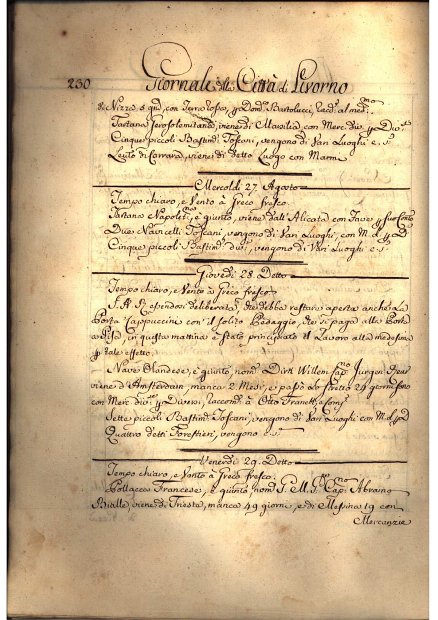 230 Giornale della Città di Livorno
di Nizza è qua, con Terra rossa, p Dom.co Bartolucci, racd.o al med.mo
Tartana Jerosolemitana, viene di Marsilia con Merc. div.e p Div.i
Cinque piccoli Bastim.ti Toscani, vengono di Vari Luoghi e S.
Leuto di Carrara, viene di detto Luogo con Marmi
Mercoldì 27 Agosto
Tempo chiaro, e Vento à Greco fresco.
Tartano Napolit.no è giunto, viene dall'Alicata con Fave p suo conto
Due Navicelli Toscani, vengono di Vari Luoghi, con M. d. p D
Cinque piccoli Bastim.ti div.i, vengono di Vari Luoghi e S.
Giovedì 28 Detto
Tempo chiaro, e Vento à Greco fresco
S. A. R. essendosi deliberata, che debba restare aperta anche La
Porta Cappuccini con il solito Pedaggio, che si paga alla Porta
a Pisa, in questa mattina è stato principiato il Lavoro alla medesima
p tale effetto.
Nave Olandese, è giunto, nom.o Dirk Willem Cap.no Jurgon
viene d'Amsterdam, manca 2 Mesi, e passò Lo stretto 24 giorni sono
con Merc. div.e p Diversi, raccom.o à Otto Franck, a Cons.
Sette piccoli Bastim.ti Toscani, vengono di Vari Luoghi con M. d. p D
Quattro detti Forestieri, vengono e S.
Venerdì 29 Detto
Tempo chiaro, e Vento à Greco fresco.
Pollacca Francese, è giunto nom.o G. M. G. Cap.no Abramo
Bialle, viene di Trieste, manca 49 giorni, e di Messina 19 con
Mercanzie